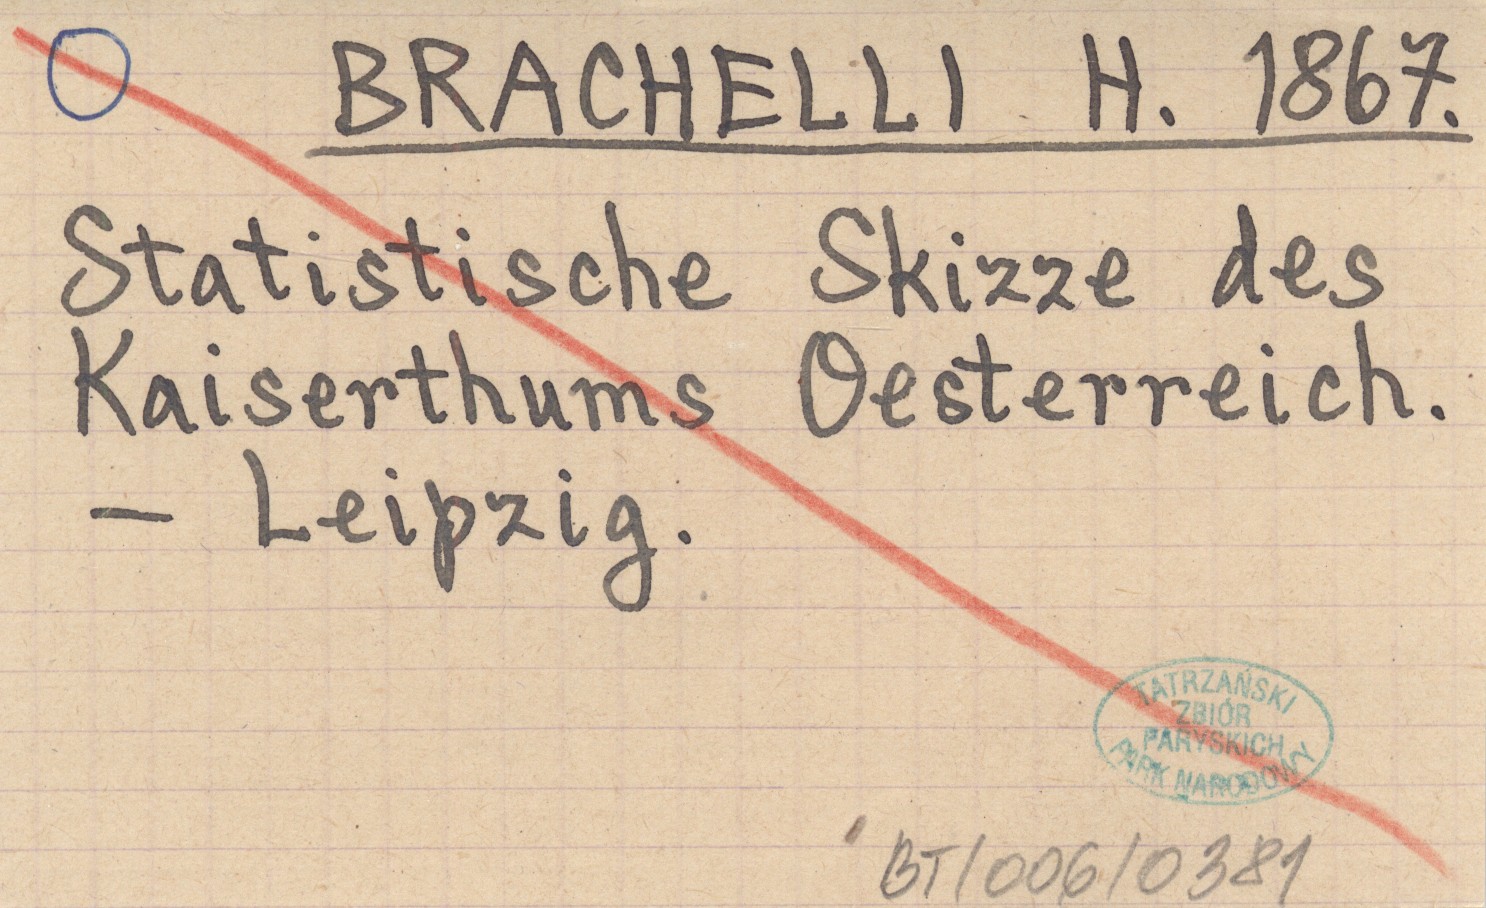 BRACHELLI H. 1867.
Statistische Skizze des
Kaiserthums Oesterreich.
— Leipzig.
TATRZAŃSKI
ZBIÓR
PARYSKICH
PARK NARODOWY
BT/006/0381